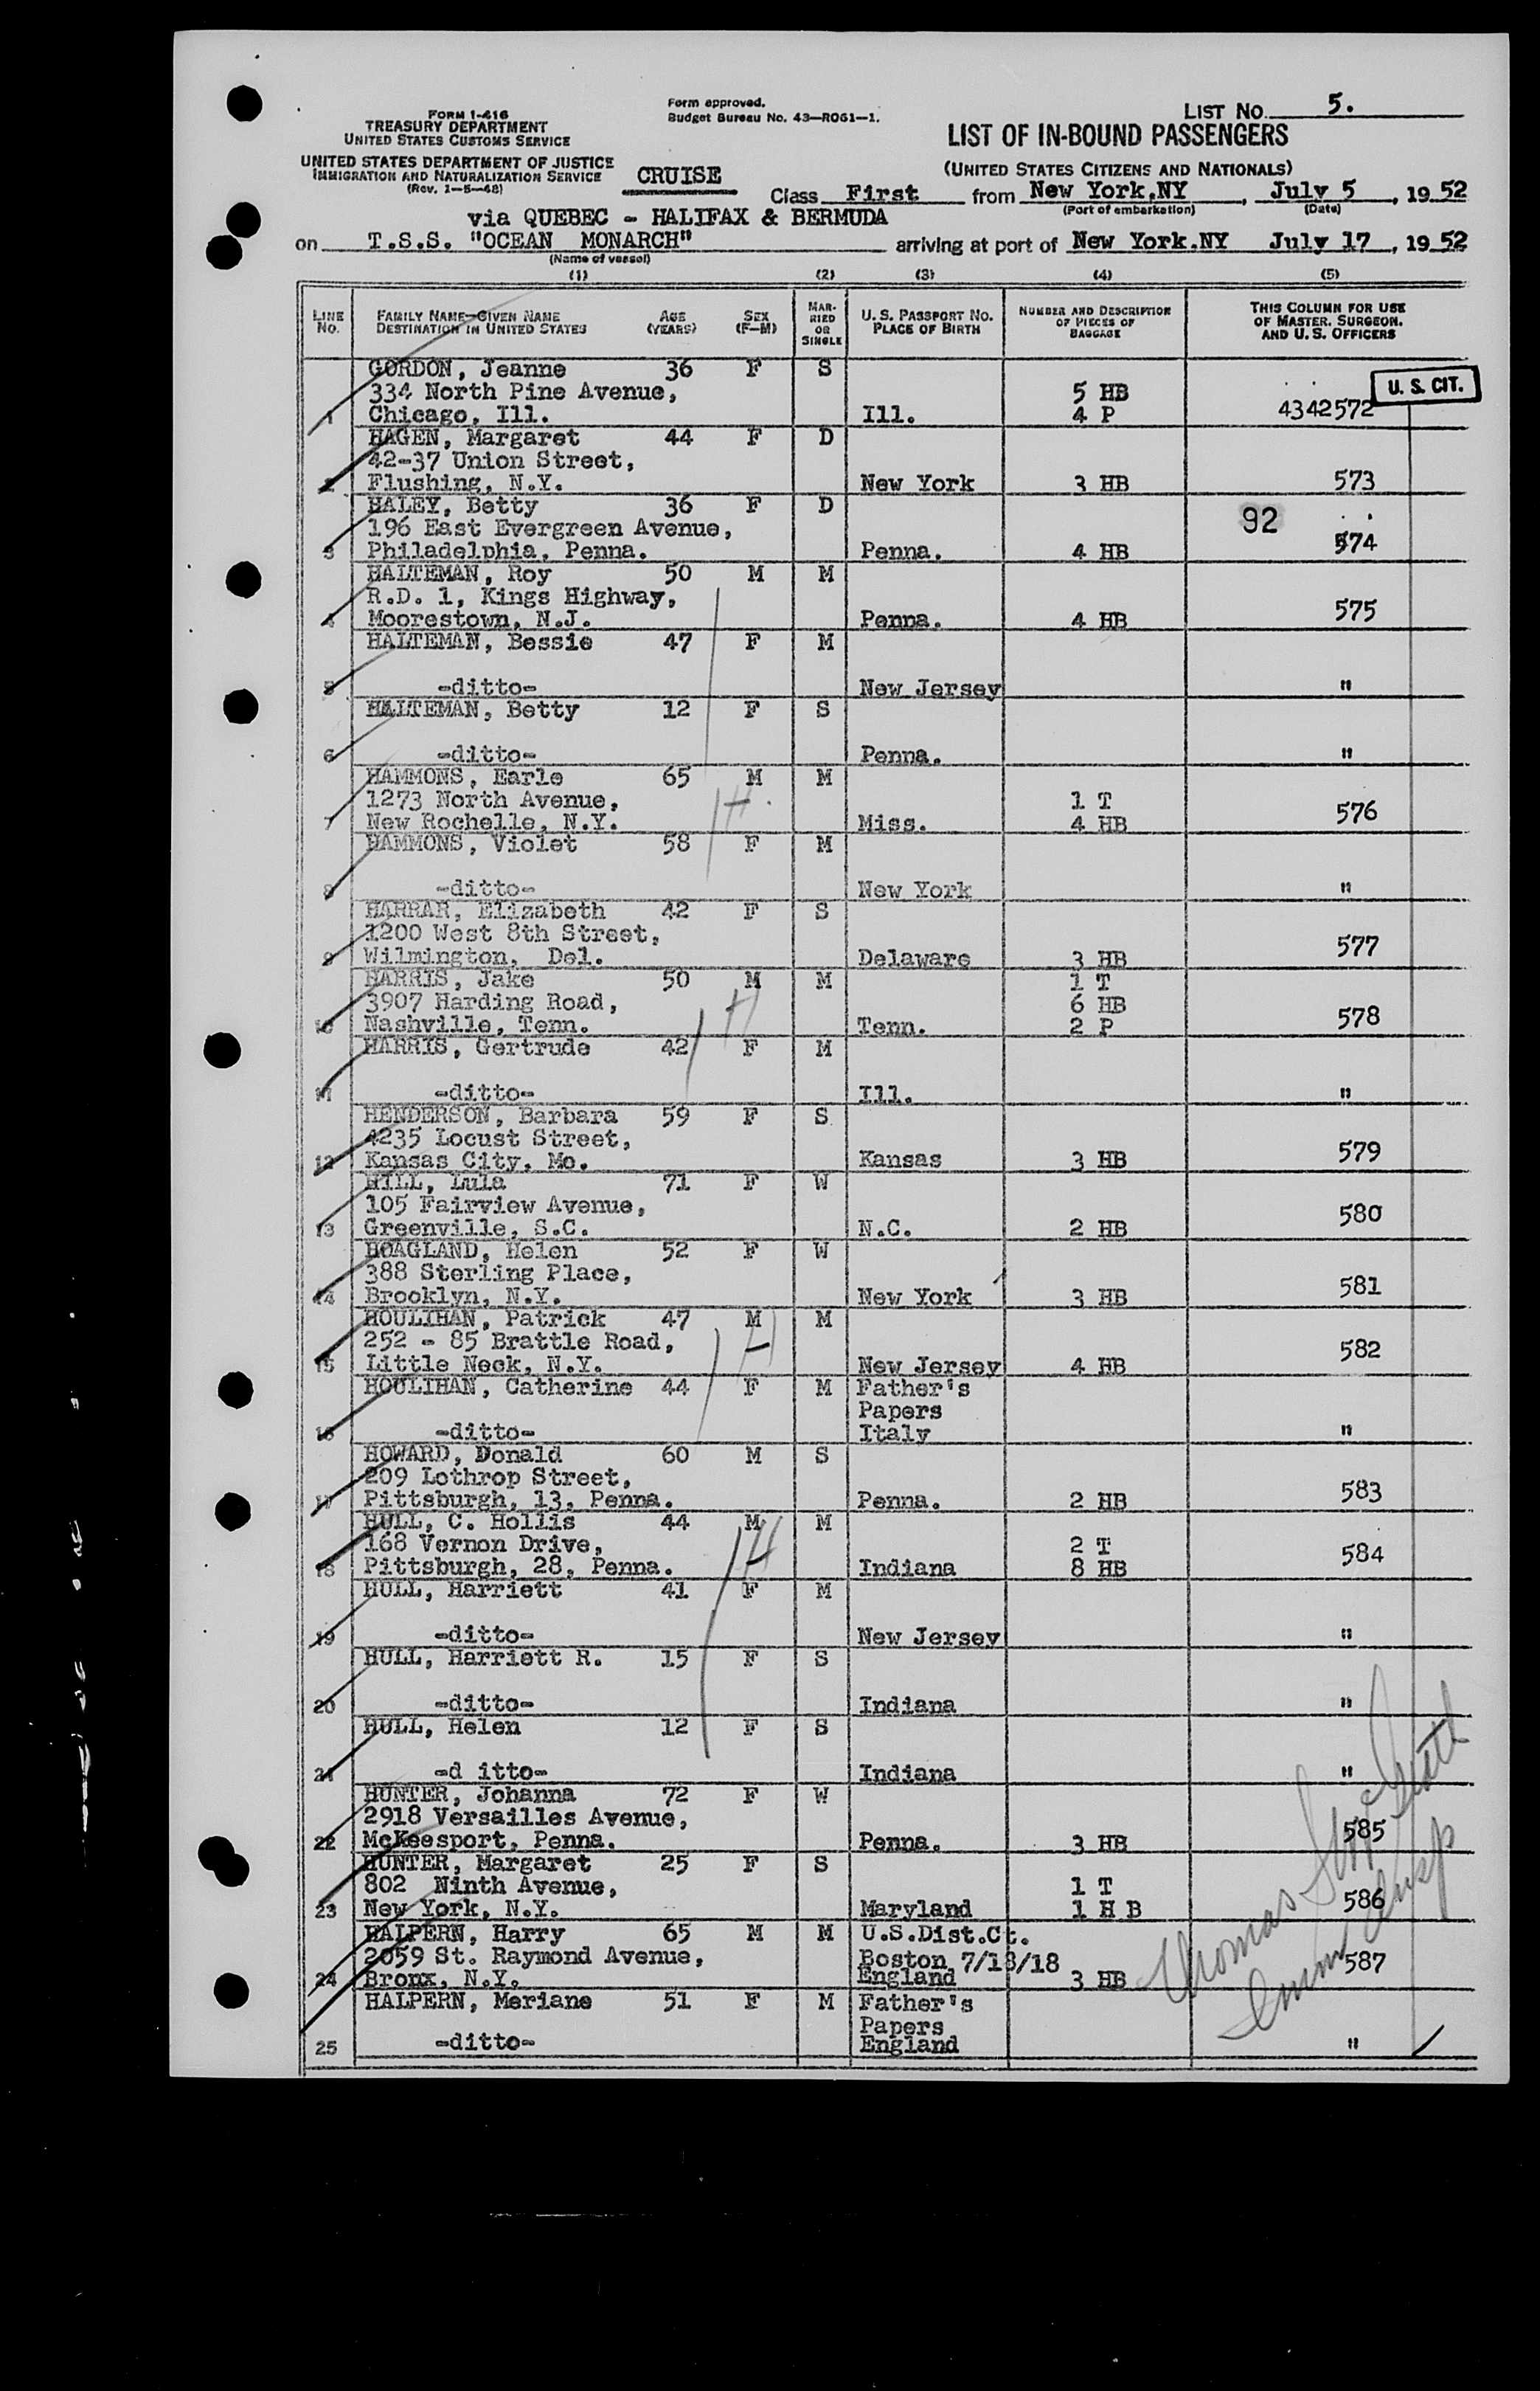 FORM I-416
TREASURY DEPARTMENT
UNITED STATES CUSTOMS SERVICE
UNITED STATES DEPARTMENT OF JUSTICE
IMMIGRATION AND NATURALIZATION SERVICE
(Rev. 1-5-48)
Form approved.
Budget Bureau No. 43-R061-1.
LIST NO. 5.
LIST OF IN-BOUND PASSENGERS
(UNITED STATES CITIZENS AND NATIONALS)
CRUISE
Class First from New York,NY, July 5, 1952
(Port of embarkation) (Date)
via QUEBEC - HALIFAX & BERMUDA
on T.S.S. "OCEAN MONARCH" arriving at port of New York.NY July 17, 1952
(Name of vessel)
(1) (2) (3) (4) (5)
LINE NO. FAMILY NAME-GIVEN NAME DESTINATION IN UNITED STATES AGE (YEARS) SEX (F-M) MARRIED OR SINGLE U. S. PASSPORT NO. PLACE OF BIRTH NUMBER AND DESCRIPTION OF PIECES OF BAGGAGE THIS COLUMN FOR USE OF MASTER, SURGEON, AND U. S. OFFICERS
U. S. CIT.
GORDON, Jeanne 36 F S
334 North Pine Avenue, 5 HB
1 Chicago, Ill. Ill. 4 P 4342572
HAGEN, Margaret 44 F D
42-37 Union Street,
2 Flushing, N.Y. New York 3 HB 573
HALEY, Betty 36 F D
196 East Evergreen Avenue, 92
3 Philadelphia, Penna. Penna. 4 HB 574
HALTEMAN, Roy 50 M M
R.D. 1, Kings Highway,
4 Moorestown, N.J. Penna. 4 HB 575
HALTEMAN, Bessie 47 F M
5 -ditto- New Jersey "
HALTEMAN, Betty 12 F S
6 -ditto- Penna. "
HAMMONS, Earle 65 M M
1273 North Avenue, 1 T
7 New Rochelle, N.Y. Miss. 4 HB 576
HAMMONS, Violet 58 F M
8 -ditto- New York "
HARRAR, Elizabeth 42 F S
1200 West 8th Street,
9 Wilmington, Del. Delaware 3 HB 577
HARRIS, Jake 50 M M 1 T
3907 Harding Road, 6 HB
10 Nashville, Tenn. Tenn. 2 P 578
HARRIS, Gertrude 42 F M
11 -ditto- Ill. "
HENDERSON, Barbara 59 F S
4235 Locust Street,
12 Kansas City, Mo. Kansas 3 HB 579
HILL, Lula 71 F W
105 Fairview Avenue,
13 Greenville, S.C. N.C. 2 HB 580
HOAGLAND, Helen 52 F W
388 Sterling Place,
14 Brooklyn, N.Y. New York 3 HB 581
HOULIHAN, Patrick 47 M M
252 - 85 Brattle Road,
15 Little Neck, N.Y. New Jersey 4 HB 582
HOULIHAN, Catherine 44 F M Father's
Papers
16 -ditto- Italy "
HOWARD, Donald 60 M S
209 Lothrop Street,
17 Pittsburgh, 13, Penna. Penna. 2 HB 583
HULL, C. Hollis 44 M M
168 Vernon Drive, 2 T
18 Pittsburgh, 28, Penna. Indiana 8 HB 584
HULL, Harriett 41 F M
19 -ditto- New Jersey "
HULL, Harriett R. 15 F S
20 -ditto- Indiana "
HULL, Helen 12 F S
21 -d itto- Indiana "
HUNTER, Johanna 72 F W
2918 Versailles Avenue,
22 McKeesport, Penna. Penna. 3 HB 585
HUNTER, Margaret 25 F S
802 Ninth Avenue, 1 T
23 New York, N.Y. Maryland 1 H B 586
HALPERN, Harry 65 M M U.S.Dist.Ct.
2059 St. Raymond Avenue, Boston 7/18/18
24 Bronx, N.Y. England 3 HB 587
HALPERN, Meriane 51 F M Father's
Papers
25 -ditto- England "
Thomas
Immr Insp